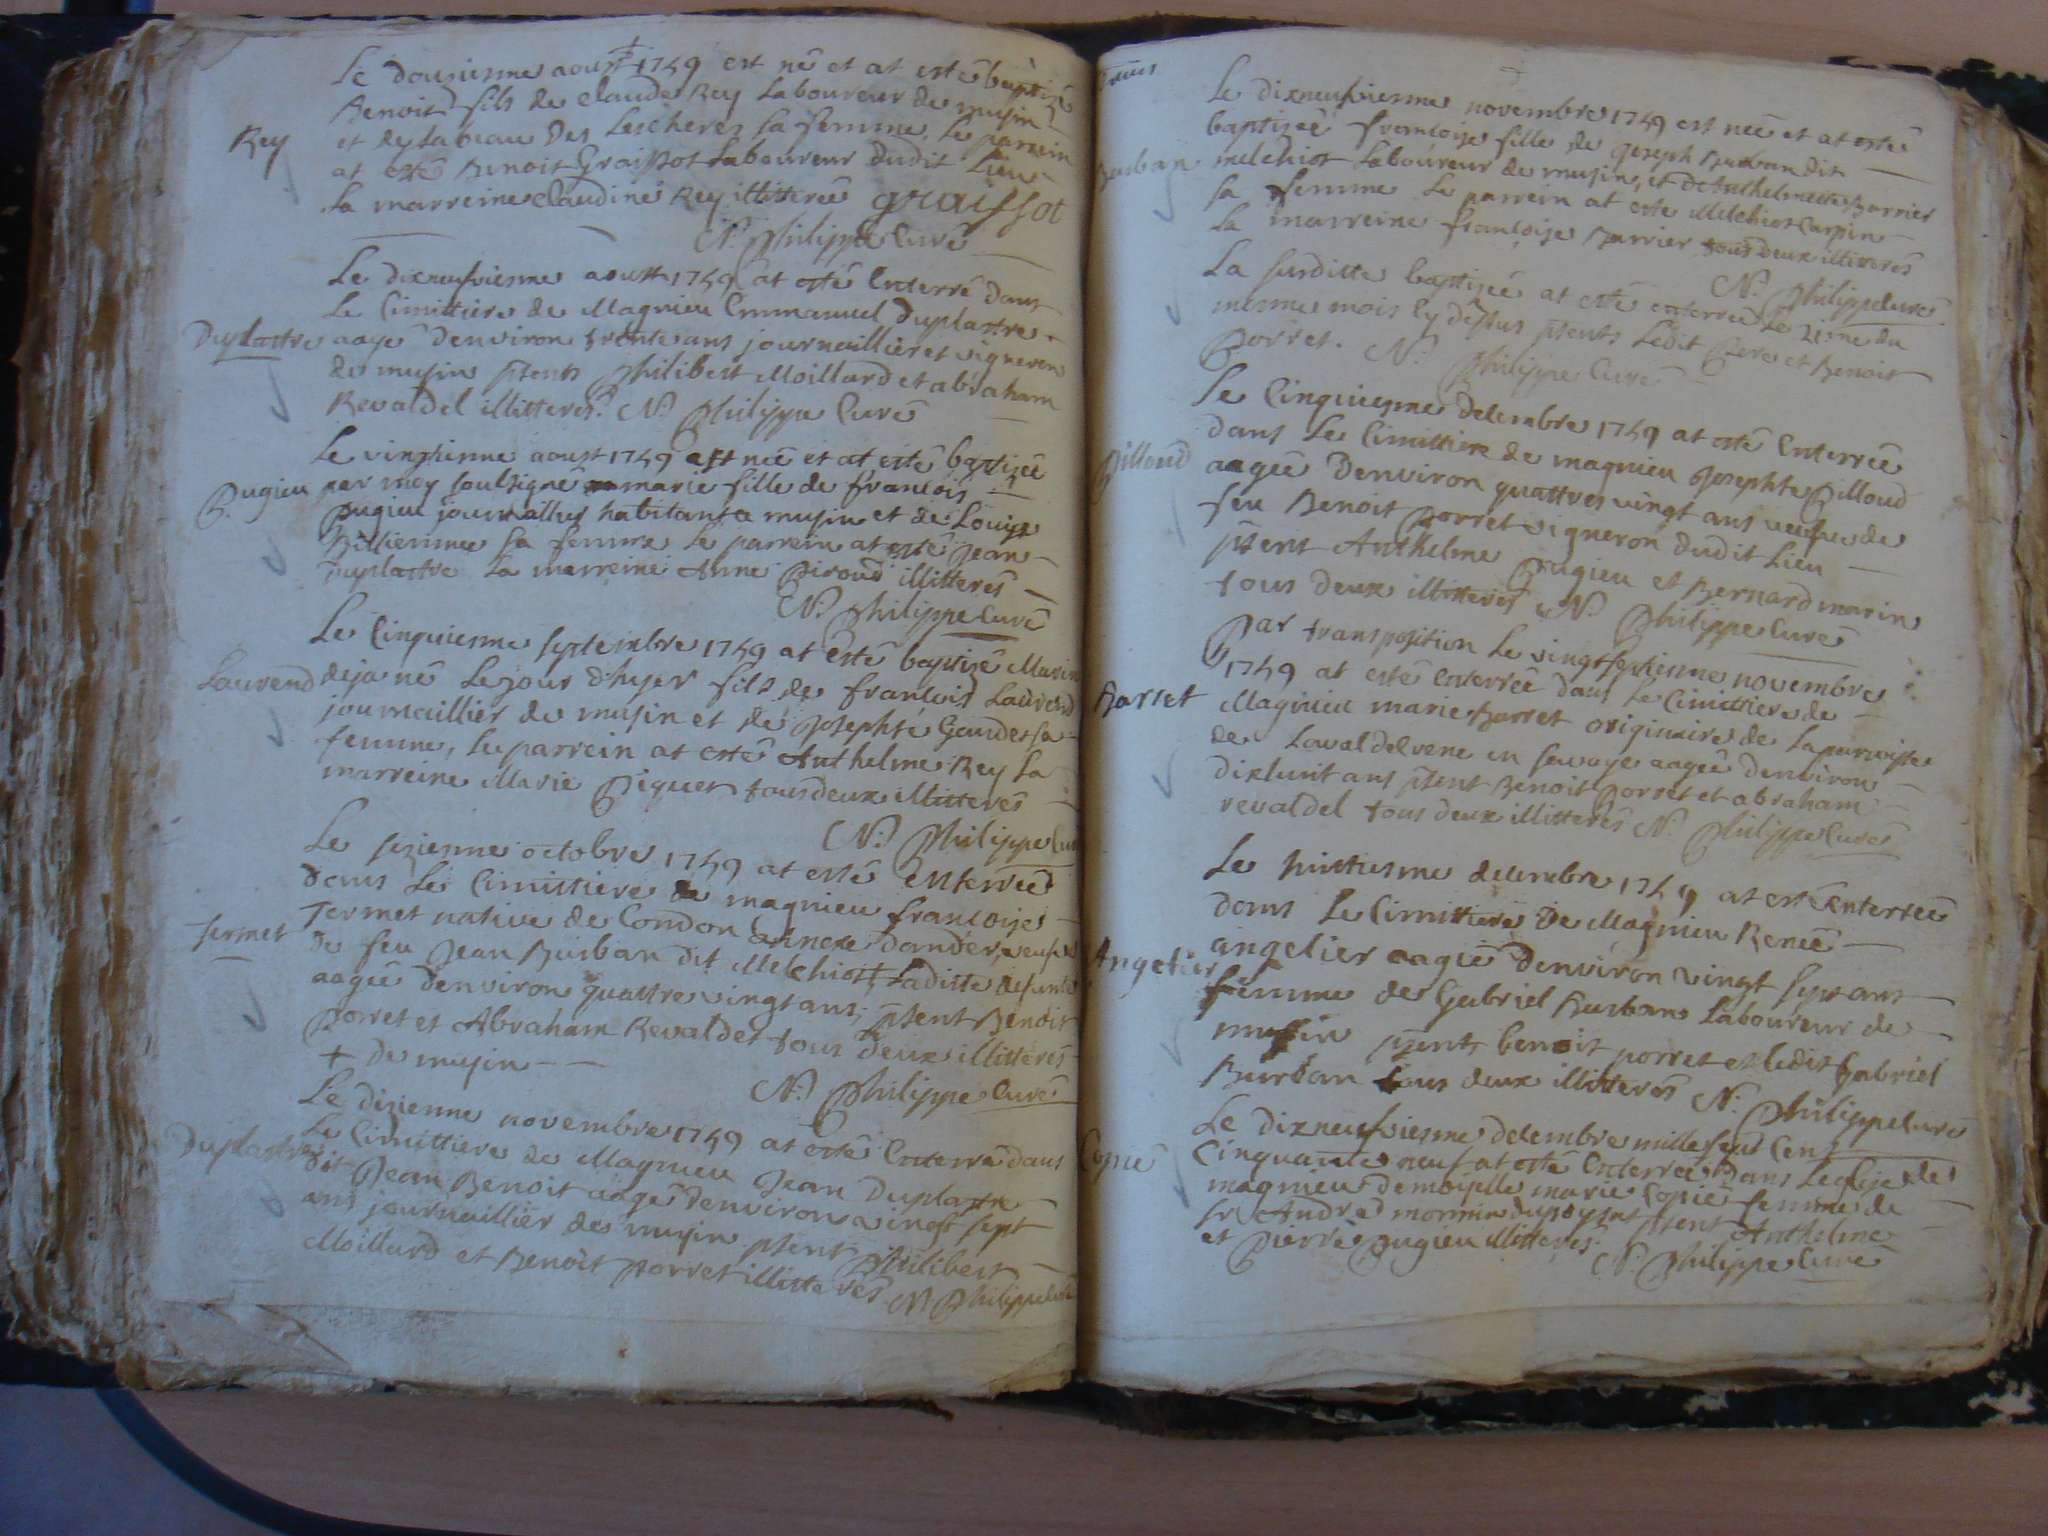 Le dousiesme aoust 1759 est né et at esté baptizé
Benoit fils de Claude Rey Laboureur de musin
Rey
et de Isabeau Des Lescheres sa femme Le parrein
at esté Benoit Graissot Laboureur dudit Lieu
La marreine Claudine Rey illitteréé graissot
N. Philippe Curé
Le dixneufviesme aoust 1759 at esté Enterré dans
Le Cimittiere de Magnieu Emmanuel Duplastre
Duplastre
aagé denviron trente ans journaillier et vigneron
de musin pntts Philibert Moillard et abraham
Revaldel illitterés. N. Philippe Curé
Le vingtienne aoust 1759 est néé et at esté baptizéé
Pugieu
par moy soussigné marie fille de francois
Pugieu journallier habitant a musin et de Louise
Billiemme sa femme Le parrein at esté Jean
Duplastre La marreine Anne Piroud illitterés
N. Philippe Curé
Le Cinquiesme septembre 1759 at esté baptizé Marin
Laurend
deja né Le jour dhyer fils de francois Laurend
journaillier de musin et de Josephte Goudet sa
femme, Le parrein at esté Anthelme Rey La
marreine Marie Piquet tous deux illitterés
N. Philippe Curé
Le seziesme octobre 1759 at esté enterréé
dans Le Cimittiere de magnieu francoise
Termet
Termet native de Condon annexe dandert veufve
de feu Jean Burban dit Melchiot, Laditte defunte
aagéé denviron quattre vingt ans; ptent Benoit
Porret et Abraham Revaldet tous deux illitterés
+ de musin
N. Philippe Curé
Le dizienne novembre 1759 at esté Enterré dans
Le Cimittiere de Magnieu Jean Duplastre
Duplastre
dit Jean Benoit aagé denviron vingt sept
ans journaillier de musin ptent Philibert
Moillard et Benoit porret illitterés N. Philippe Curé
Le dixneufviesme novembre 1759 est néé et at esté
baptizéé francoise fille de Joseph Burban dit
Burban
melchiot Laboureur de musin, et de Anthelmette Barrier
sa femme Le parrein at esté Melchiot Carpin
La marreine francoise Barrier tous deux illiterés
N. Philippe Curé
La susditte baptizéé at esté enterréé Le 21me du
mesme mois Cy dessus ptents Ledit Pere et Benoit
Porret. N. Philippe Curé
Le Cinquiesme decembre 1759 at esté Enterréé
dans Le Cimittiere de magnieu Josephte Pilloud
Pilloud
aagéé Denviron quattres vingt ans veufve de
feu Benoit Porret vigneron dudit Lieu
ptent Anthelme Pugieu et Bernard marin
tous deux illitterés N. Philippe Curé
Par transposition Le vingtseptiesme novembre
1759 at esté enterréé dans Le Cimittiere de
Barret
Magnieu marie Barret originaire de La parroisse
de en savoye aagéé denviron
dixhuit ans ptent Benoit Porret et abraham
revaldel tous deux illitterés N. Philippe Curé
Le huittiesme decembre 1759 at esté enterréé
dans Le Cimittiere de Magnieu Renéé
Angelier
angelier aagéé denviron vingt sept ans
femme de Gabriel Burban Laboureur de
musin ptents benoit porret et ledit Gabriel
Burban tous deux illitterés N. Philippe Curé
Le dixneufviesme decembre mille sept Cent
Copié
Cinquante neuf at esté Enterréé dans Leglise de
magnieu demoiselle marie Copié femme de
Sr André ptent Anthelme
et Pierre Pugieu illitterés. N. Philippe Curé